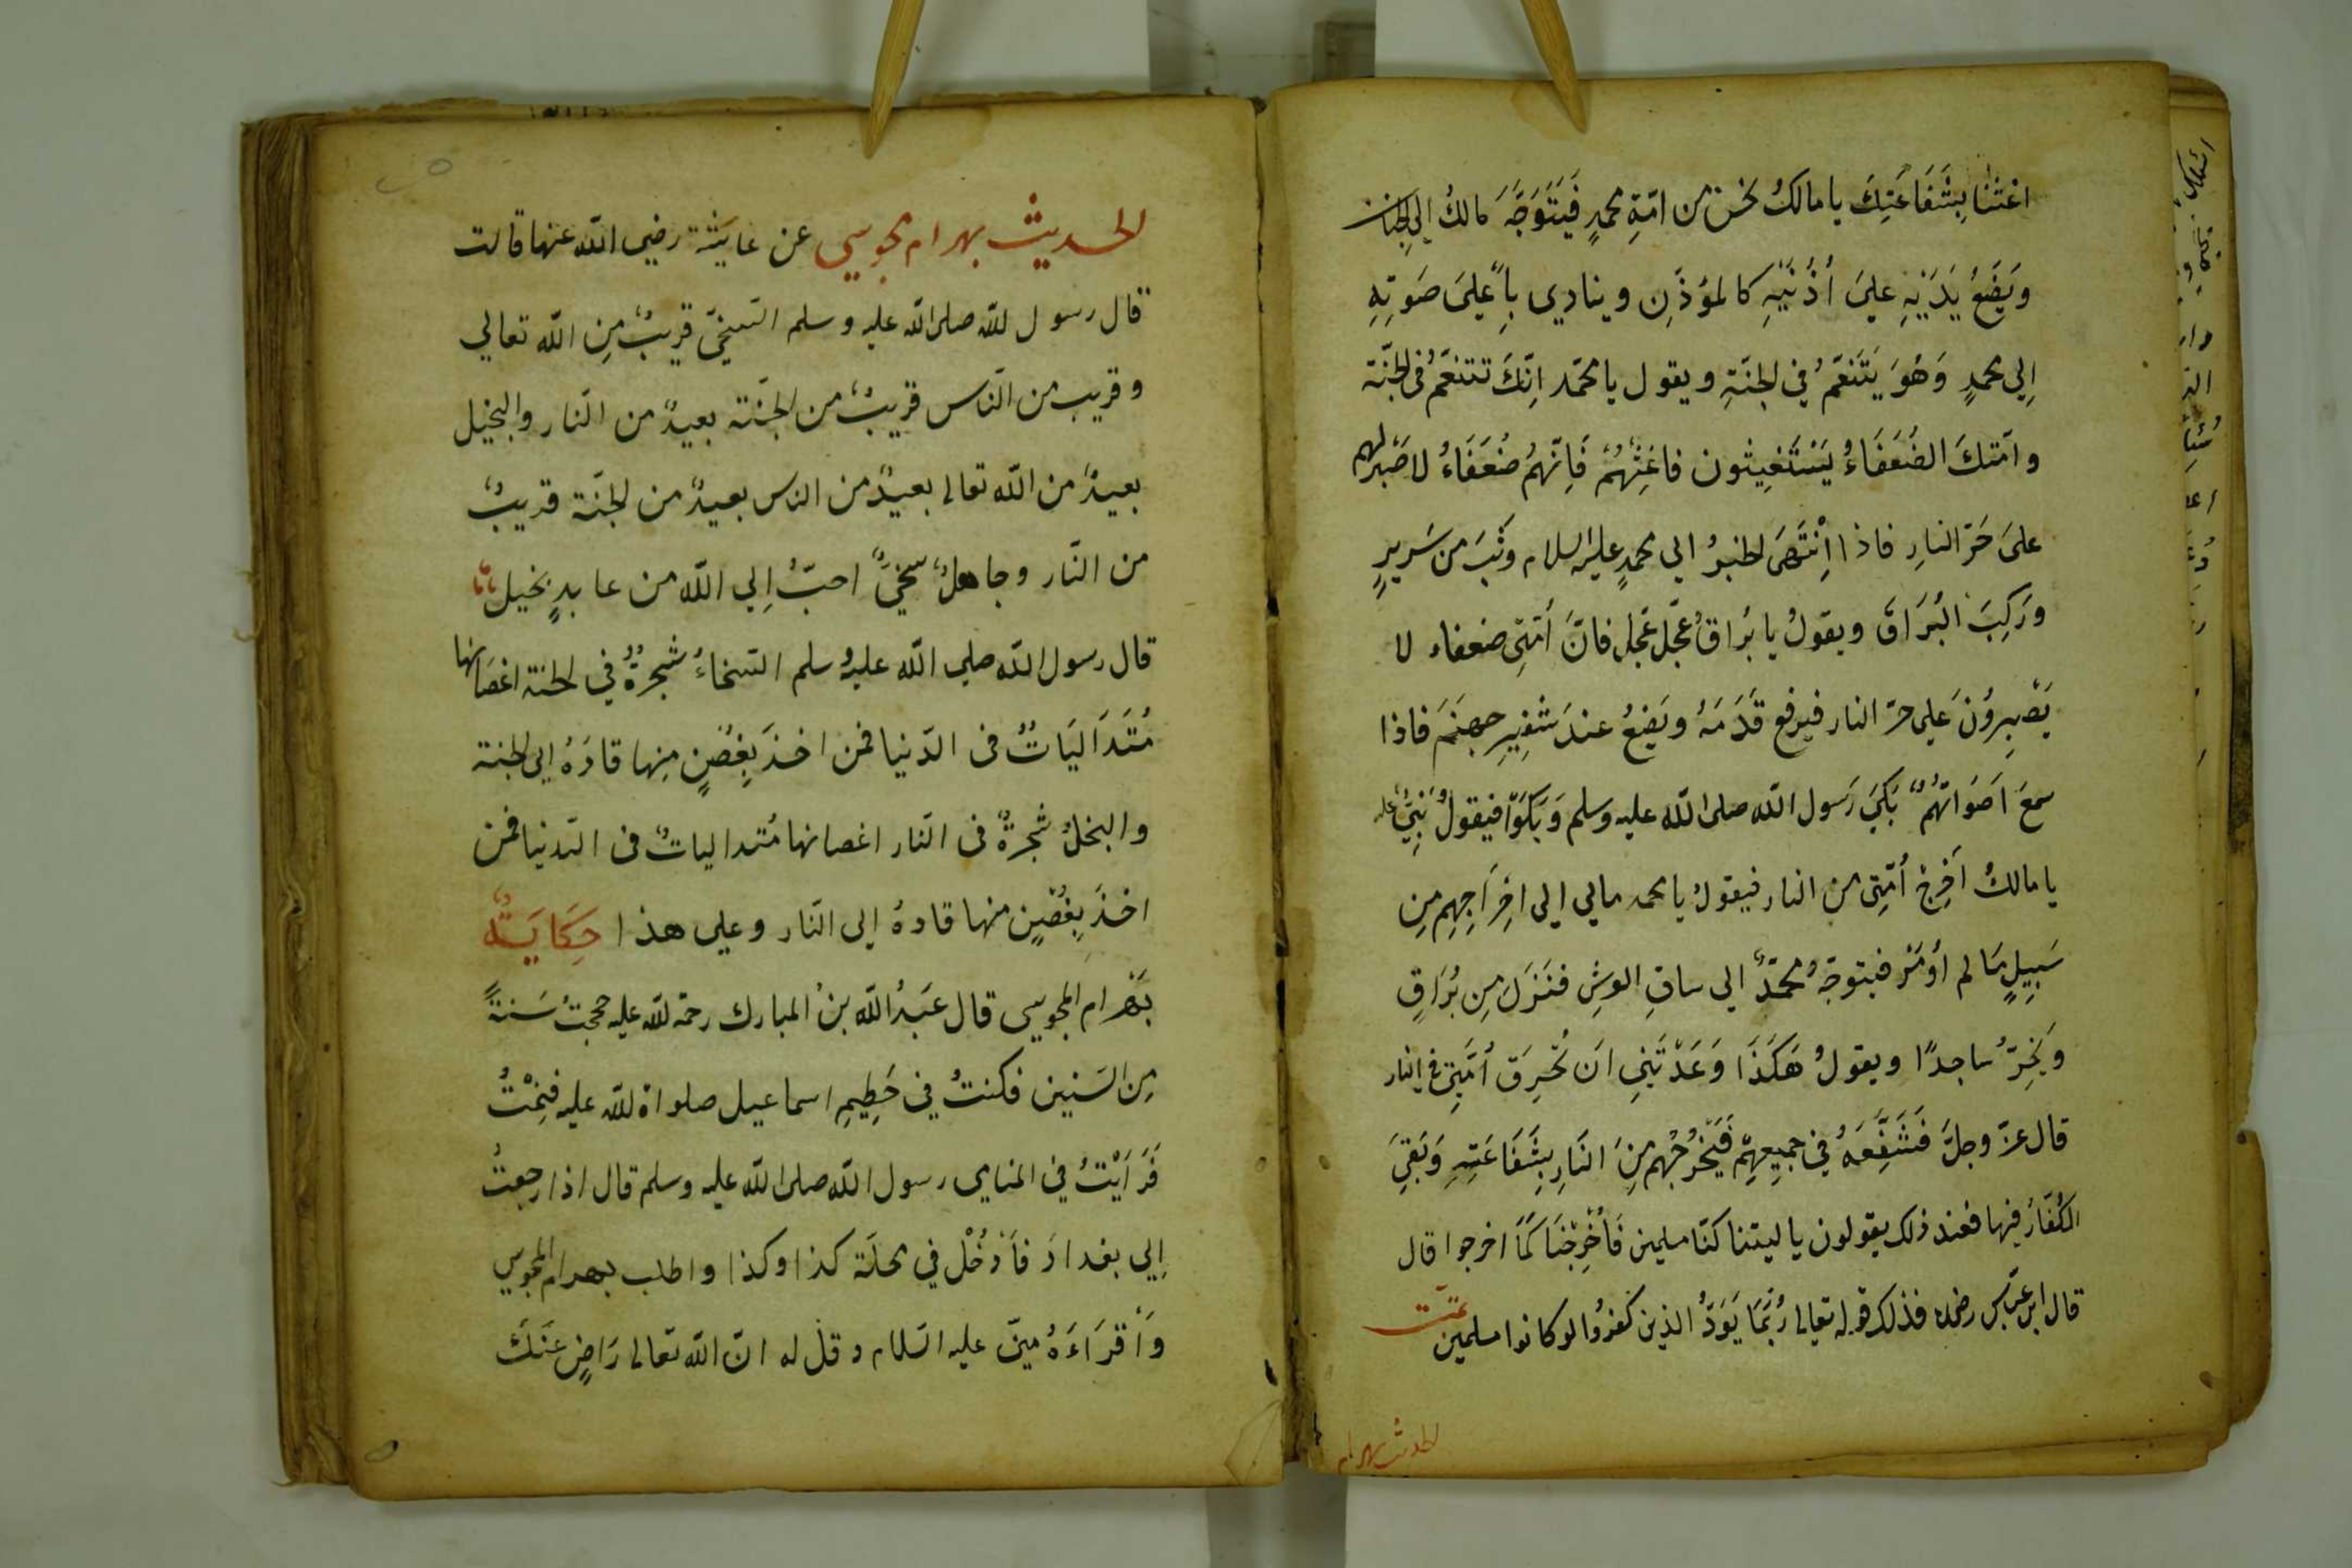 اغثنا بِشَفَاعَتِكَ يا مالكُ نحن من امّةِ محمدٍ فَيَتَوَجَّهَ مالكُ الي الجنان
وَيَضَعُ يَدَيْهِ عليَ اُذُنَيْهِ كالمؤذنِ وينادي بِاَعليَ صَوتِهِ
اِلي محمدٍ وَهُوَ يَتَنَعَّمُ في الجنّةِ ويقول يا محمّد اِنّكَ تتنعّمُ في الجنّة
وامّتكَ الضُعَفَاءُ يَسْتَغِيثون فاغِثْهُمْ فَاِنّهُمُ ضُعَفَاءُ لا صَبْرَ لهم
علىَ حَرّ النارِ فاذا اِنْتَهىَ الخبرُ الي محمدٍ عليه السلام وثَبَ من سَريرٍ
ورَكِبَ البُرَاقَ ويقولُ يا بُراقُ عجّل عجّل فانَّ اُمّتِى ضعفاء لا
يَصْبِروُنَ علي حرّ النار فيرفع قَدَمَهُ ويَضِعُ عندَ شفِيرِ جهنّمَ فاذا
سمعَ اَصَوَاتهُمْ بَكيَ رَسول الله صلى الله عليه وسلم وَبَكَوْا فيقولُ نبِيُّ الله
يا مالكُ اَخرِج اُمّتِى من النار فيقولُ يا محمد مالي الي اخِرَاجِهِم مِن
سَبِيلٍ مَا لم اُومَرْ فيتوجّهُ محمّدٌ الي ساقِ العرشِ فنَزَلَ مِن بُرَاقٍ
وَيَخِرّ ساجدًا ويقولُ هَكَذَا وَعَدْتَنِي اَن تُحْرِقَ اُمَّتِى في النار
قال عزّ وجلّ فَشَفَّعَهُ في جميعِهِم فَيُخْرُجُهُم مِنَ النَارِ بِشَفَاعَتِهِ وَبَقيَ
الكُفّارُ فيها فعند ذلك يقولون يا ليتنا كنّا مسلمين فَأُخْرِجْنَا كَمَا اخرجوا قال
قال ابن عبّاس رضه فذلك قوله تعالى رُبَّمَا يَوَدُّ الذين كفرُوا لو كانوا مسلمين تمّت
الحديث بهرام
الحديث بهرام مجوسي عن عايشة رضي الله عنها قالت
قال رسول الله صلى الله عليه وسلم السّخيّ قريبٌ مِن الله تعالي
وقريب من النّاس قريبٌ من الجنّة بعيدٌ من النّار والبخيل
بعيدٌ من الله تعالى بعيدٌ من الناس بعيدٌ من الجنّة قريبٌ
من النّار وجاهلٌ سخيً احبُّ اِلي الله من عابدٍ بخيل
قال رسول الله صلي الله عليه وسلم السّخاءُ شجَرةٌ في الجنة اغصَانها
مُتَدَاليَاتٌ فى الدّنيا فمن اخذ بِغصُنٍ مِنها قادَهُ الي الجنة
والبخلُ شجرةٌ فى النّار اغصانها مُتدالياتٌ فى الدّنيا فمن
اخذَ بِغصُنٍ منها قادهُ الي النّار وعلي هذا حِكَايَتُه
بَهرام المجوسي قال عَبدُ الله بنُ المبارك رحمة الله عليه حججتُ سَنةً
مِن السَنين فكنتُ في حَطِيمِ اسماعيل صلواة الله عليه فنِمْتُ
فَرَاَيْتُ في المنامي رسول الله صلى الله عليه وسلم قال اذا رجعتُ
اِلي بغدادَ فاَدْخُلْ في محلّة كذا وكذا واطلب بهرام المجوسي
وَأقرَاءَهُ مِنّي عليه السّلام وقل له انّ الله تعالى رَاضٍ عَنكَ